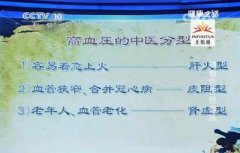 CCTV 10
INFINITUS
无限极
高血压的中医分型
1) 容易着急上火——肝火型
2) 血管狭窄、合并冠心病——痰阻型
3) 老年人、血管老化——肾虚型